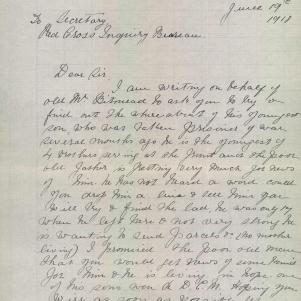 June 19th
1918
To Secretary
Red Cross Inquiry Bureau
Dear Sir
I am writing on behalf of
old Mr to ask you to try &
find out the where about of his youngest
son, who was taken prisoner of war
several months ago he is the youngest of
4 brothers serving at the front and the poor
old father is fretting very much for news
of him he has not heard a word could
you drop him a line & tell him you
will try & find the lad he was only
when he left here & not very strong he
is wanting to send parcels to (no mother
living) I promised the poor old man
that you would get news of some kind
for him & he is living in hope. one
of his sons won a D.C.M. Hoping you
will as soon as